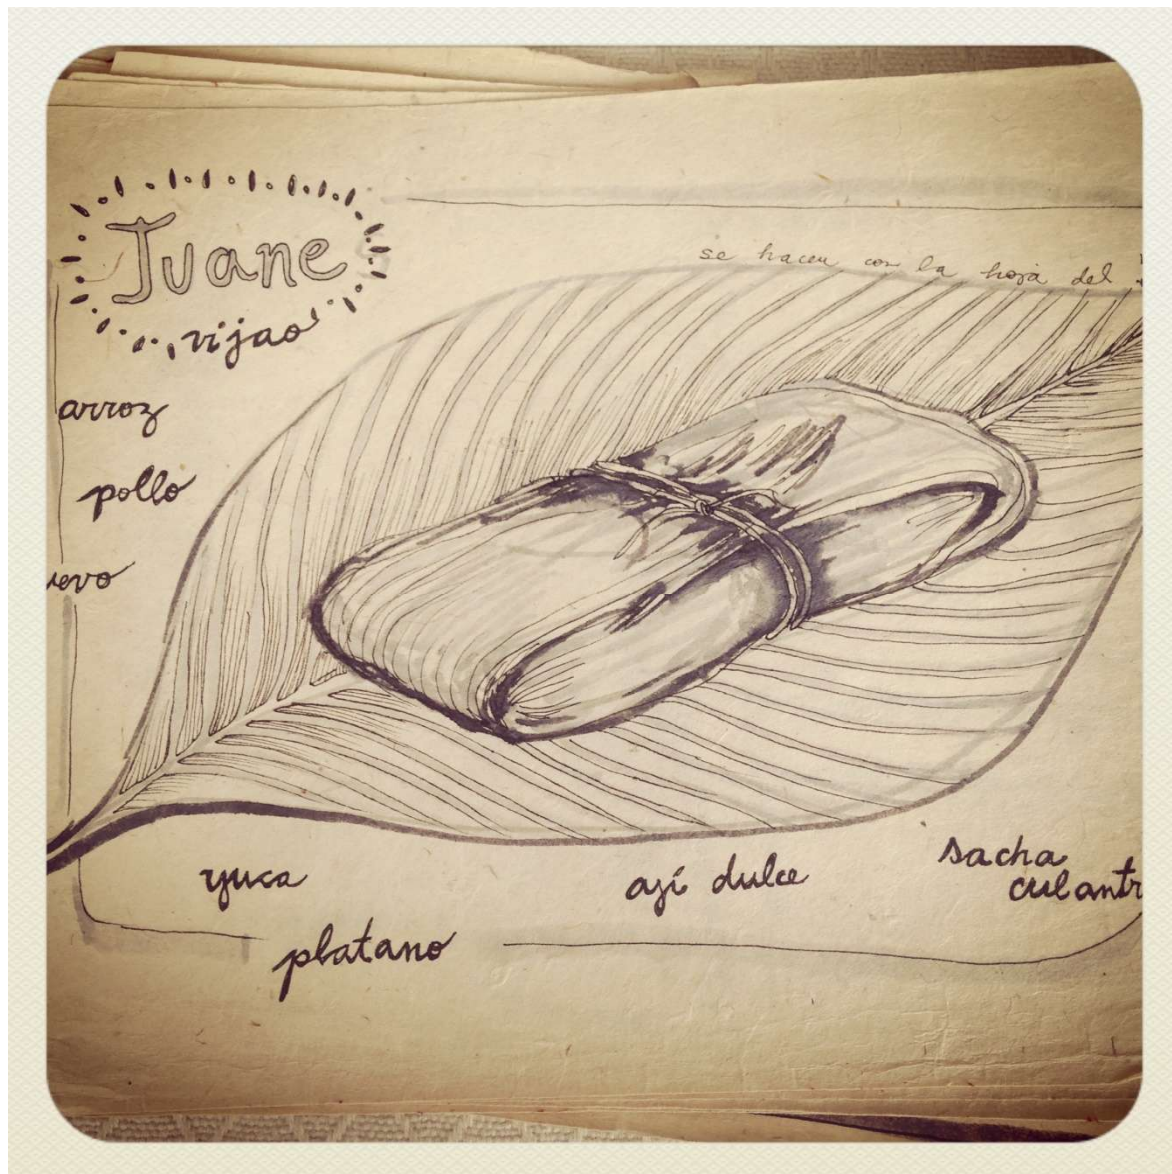 Juane
vijao
se hacen con la hoja del
arroz
pollo
uevo
yuca
ají dulce
sacha
culantr
platano